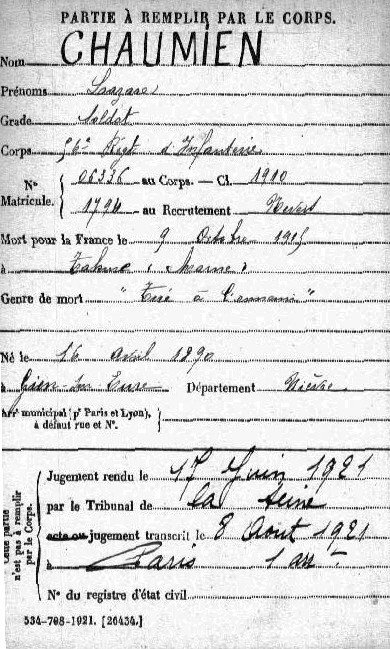 PARTIE À REMPLIR PAR LE CORPS.
Nom CHAUMIEN
Prénoms Lazare
Grade Soldat
Corps 56e Regt d'Infanterie
N° Matricule. 06336 au Corps. — Cl. 1910
1794 au Recrutement Nevers
Mort pour la France le 9 Octobre 1915
à Tahure (Marne)
Genre de mort "Tué à l'ennemi"
Né le 16 Avril 1890
à Gien-sur-Cure Département Nièvre
Arrt municipal (pr Paris et Lyon),
à défaut rue et N°.
Cette partie
n'est pas à remplir
par le Corps.
Jugement rendu le 17 Juin 1921
par le Tribunal de la Seine
acte ou jugement transcrit le 8 Aout 1921
à Paris 1 arr
N° du registre d'état civil
534-708-1921. [26434.]